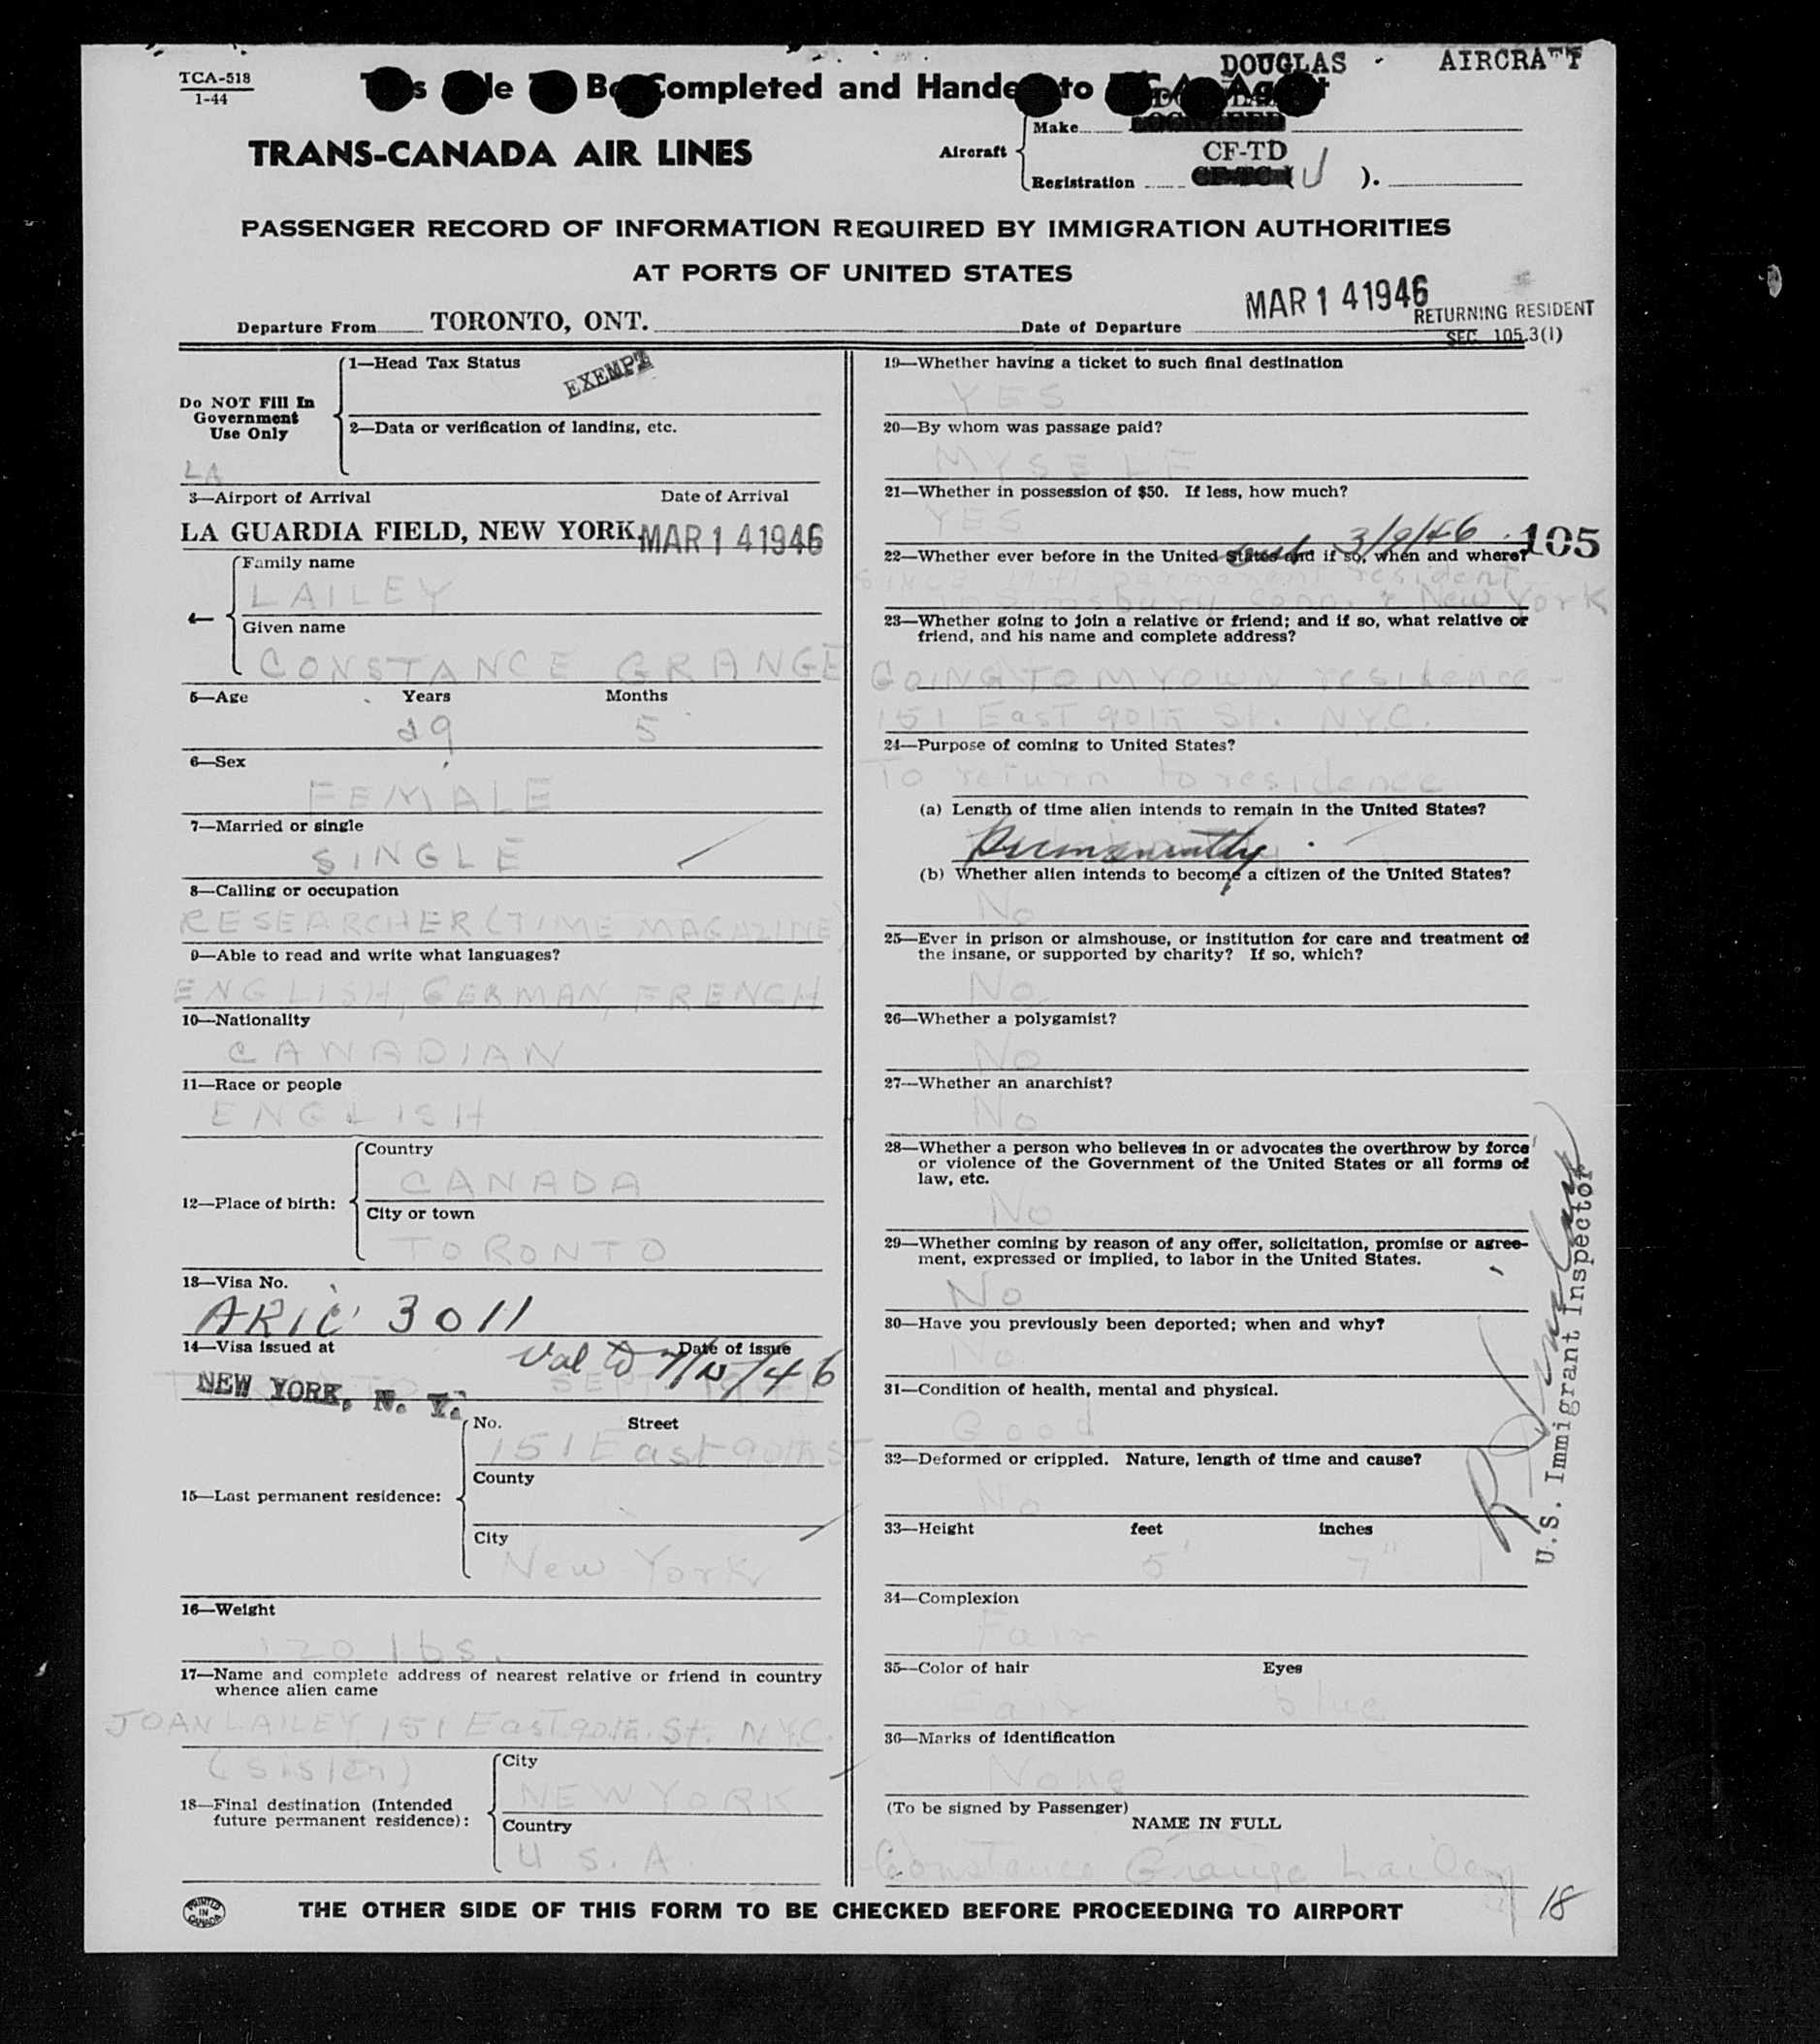 TCA-518
1-44
DOUGLAS - AIRCRAFT
Completed and Handed to
TRANS-CANADA AIR LINES
Aircraft
Make
CF-TD
Registration (U ).
PASSENGER RECORD OF INFORMATION REQUIRED BY IMMIGRATION AUTHORITIES
AT PORTS OF UNITED STATES
Departure From TORONTO, ONT. Date of Departure MAR 14 1946
RETURNING RESIDENT
SEC. 105.3(1)
Do NOT Fill In
Government
Use Only
1—Head Tax Status EXEMPT
2—Data or verification of landing, etc.
LA
3—Airport of Arrival Date of Arrival
LA GUARDIA FIELD, NEW YORK. MAR 14 1946
Family name
LAILEY
Given name
CONSTANCE GRANGE
5—Age Years Months
29 5
6—Sex
FEMALE
7—Married or single
SINGLE
8—Calling or occupation
RESEARCHER (TIME MAGAZINE)
9—Able to read and write what languages?
ENGLISH, GERMAN, FRENCH
10—Nationality
CANADIAN
11—Race or people
ENGLISH
12—Place of birth:
Country
CANADA
City or town
TORONTO
13—Visa No.
3011
14—Visa issued at Date of issue
Val to
NEW YORK, N. Y.
15—Last permanent residence:
No. Street
151 East 90th St
County
City
New York
16—Weight
120 lbs.
17—Name and complete address of nearest relative or friend in country
whence alien came
JOAN LAILEY, 151 East 90th. St. N.Y.C.
(sister)
18—Final destination (Intended
future permanent residence):
City
NEW YORK
Country
U S. A.
19—Whether having a ticket to such final destination
YES
20—By whom was passage paid?
MYSELF
21—Whether in possession of $50. If less, how much?
YES
3/9/46. 105
22—Whether ever before in the United States and if so, when and where?
SINCE permanent resident
in Simsbury, Conn. & New York
23—Whether going to join a relative or friend; and if so, what relative or
friend, and his name and complete address?
GOING TO MY OWN residence -
151 East 90th St. N.Y.C.
24—Purpose of coming to United States?
To return to residence
(a) Length of time alien intends to remain in the United States?
Permanently
(b) Whether alien intends to become a citizen of the United States?
No
25—Ever in prison or almshouse, or institution for care and treatment of
the insane, or supported by charity? If so, which?
No
26—Whether a polygamist?
No
27—Whether an anarchist?
No
28—Whether a person who believes in or advocates the overthrow by force
or violence of the Government of the United States or all forms of
law, etc.
No
29—Whether coming by reason of any offer, solicitation, promise or agree-
ment, expressed or implied, to labor in the United States.
No
30—Have you previously been deported; when and why?
No
31—Condition of health, mental and physical.
Good
32—Deformed or crippled. Nature, length of time and cause?
No
33—Height feet inches
5' 7"
34—Complexion
Fair
35—Color of hair Eyes
Fair blue
36—Marks of identification
None
(To be signed by Passenger)
NAME IN FULL
Constance Grange Lailey
U.S. Immigrant Inspector
PRINTED
IN
CANADA
THE OTHER SIDE OF THIS FORM TO BE CHECKED BEFORE PROCEEDING TO AIRPORT
18